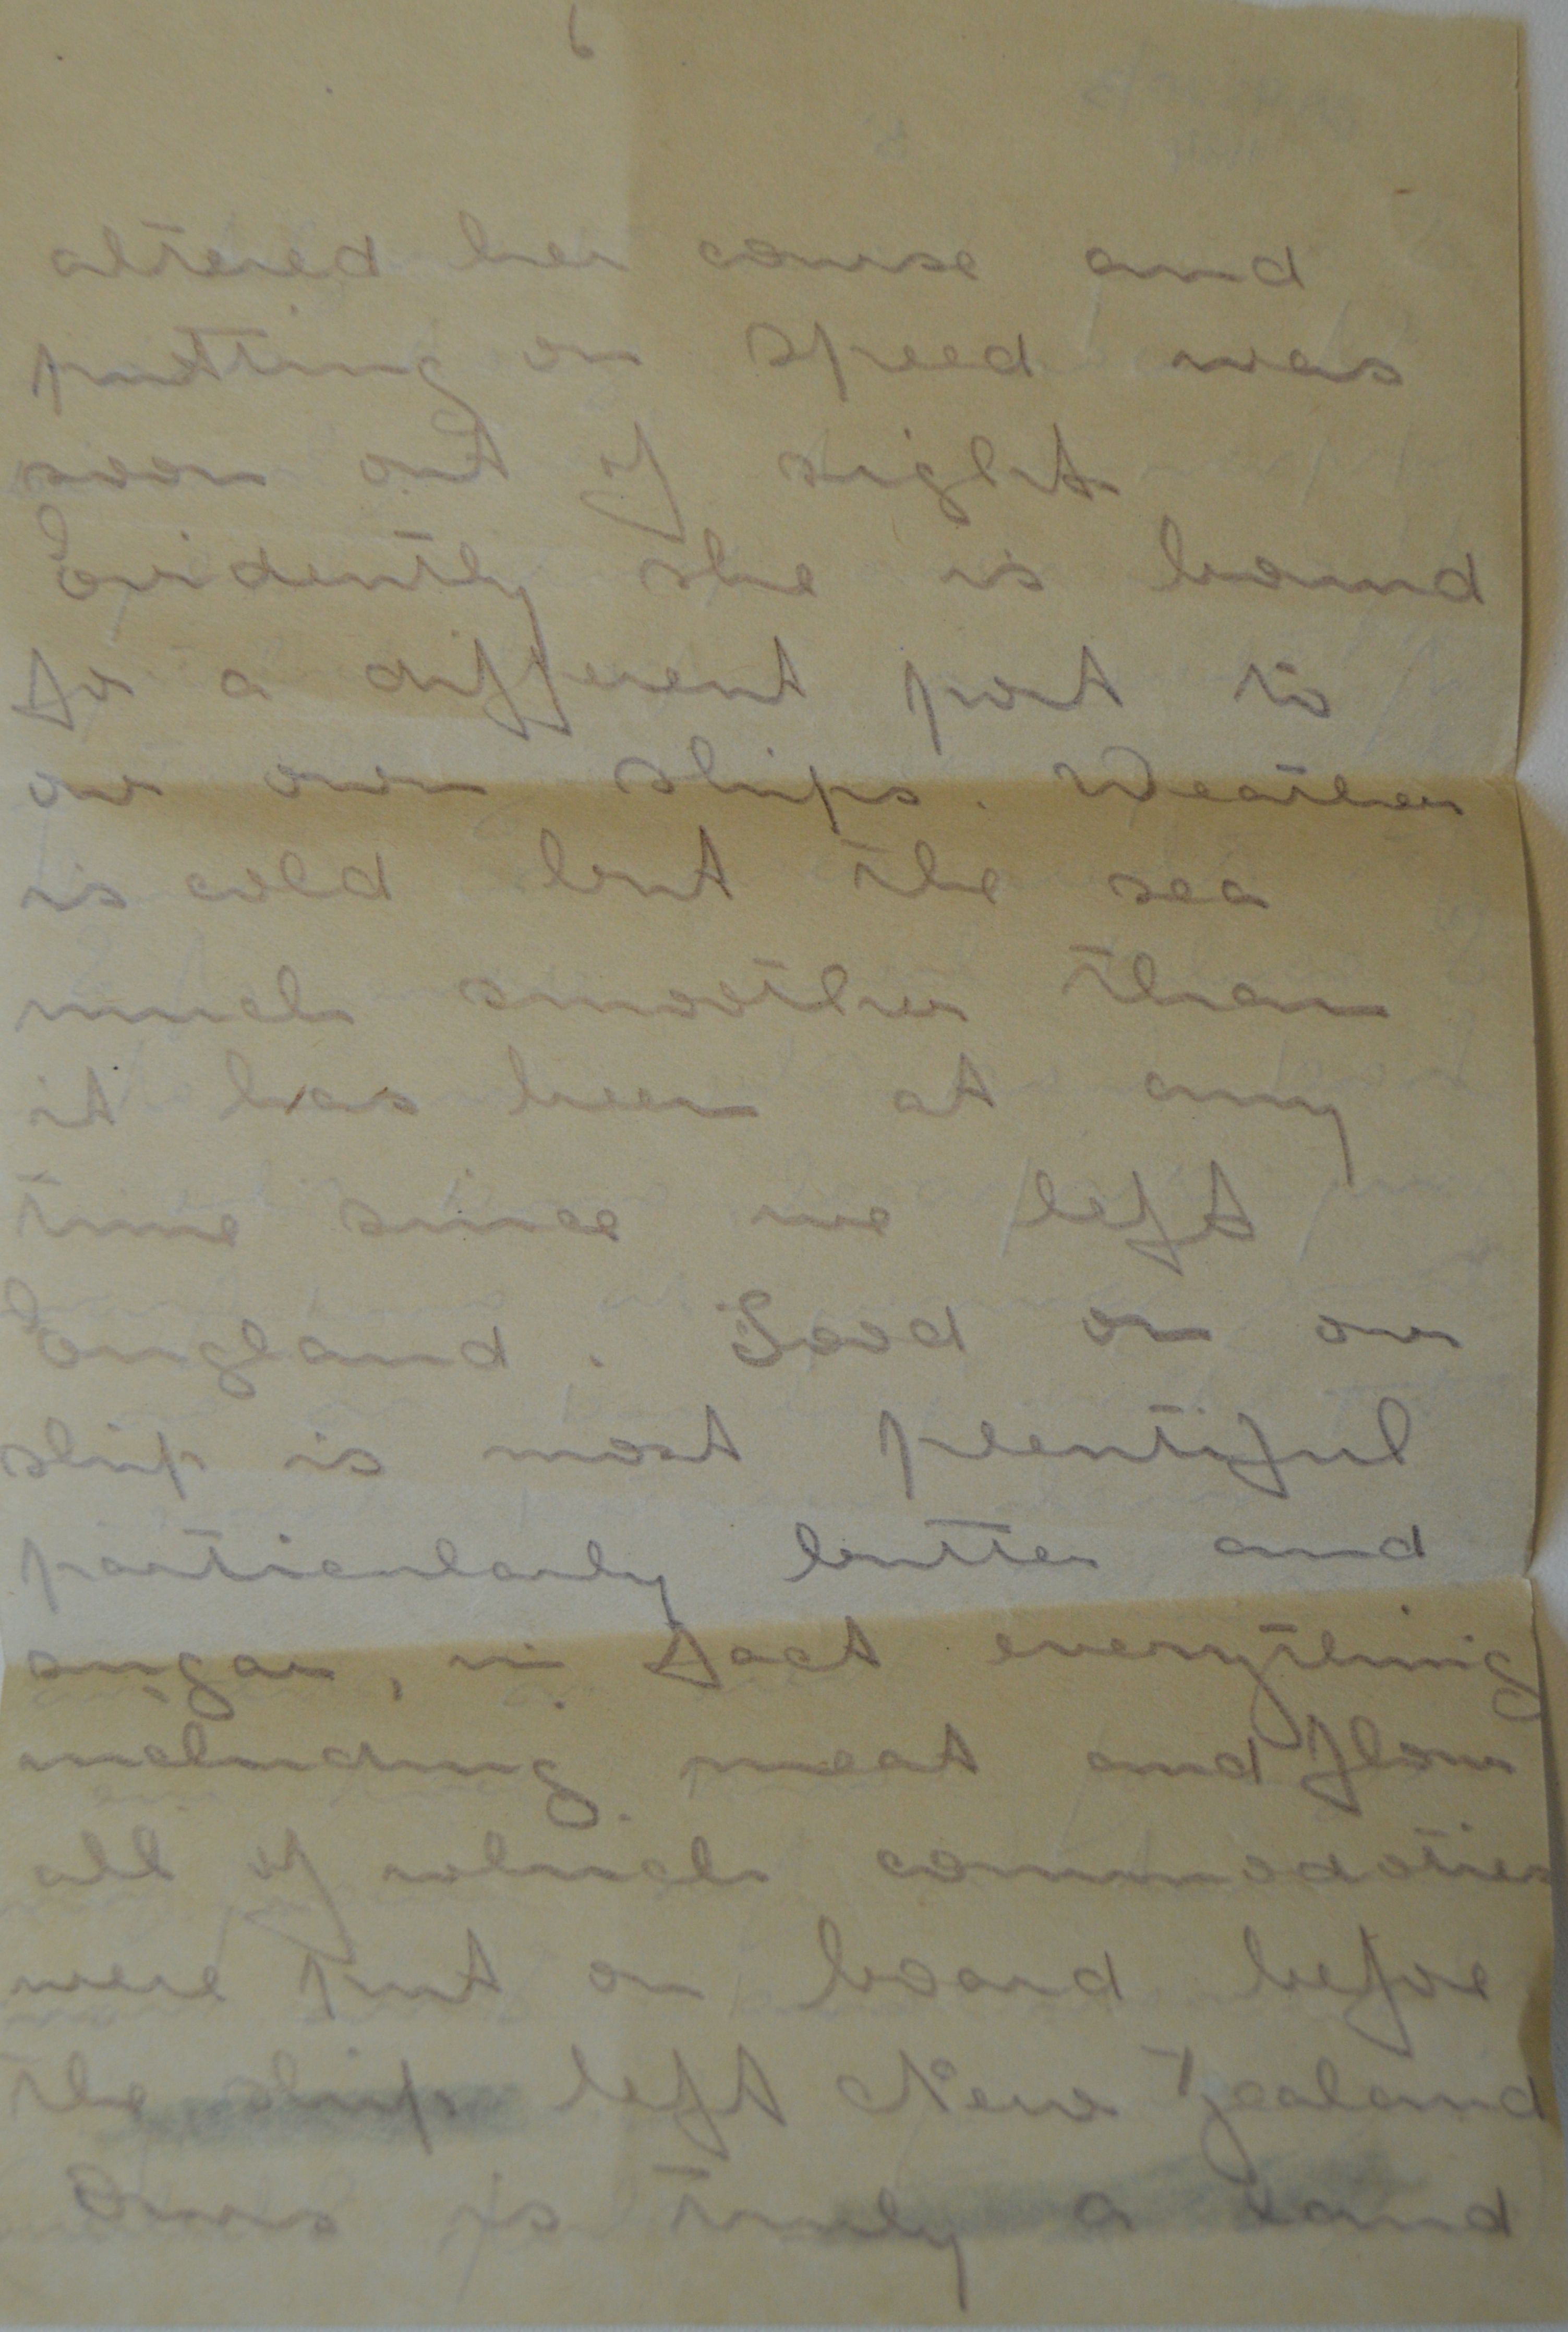 6
altered her course and
putting on speed was
soon out of sight
Evidently she is bound
for a different port to
our own ships. Weather
is cold but the sea
much smoother than
it has been at any
time since we left
England. Food on our
ship is most plentiful
particularly butter and
sugar, in fact everything
including meat and flour
all of which commodoties
were put on board before
the ship left New Zealand
Ours is truly a land